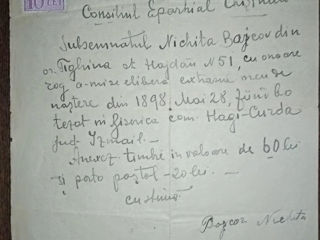 10 LEI
Consiliul Eparhial Chișinău
Subsemnatul Nichita Bojcov din
or. Tighina st Hajdău N 51, cu onoare
rog a-mi se elibera extrasu meu de
naștere din 1898, Mai 28, fiind bo
tezat în biserica com. Hagi-Curda
jud. Izmail.-
Anexez timbre în valoare de 60 lei
și porto poștal -20 lei.-
cu stimă
Bojcov Nichita